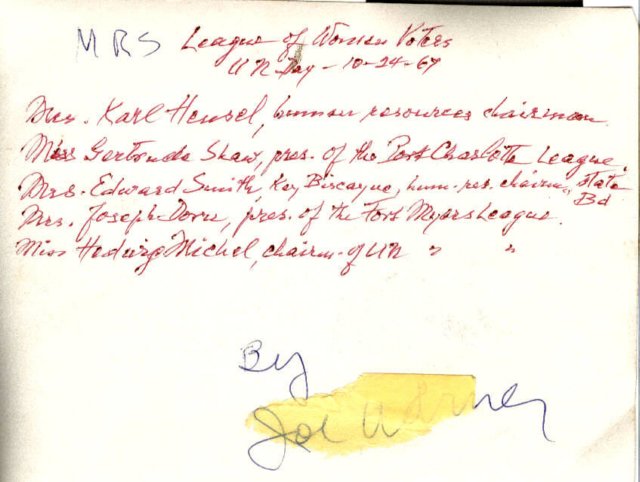 MRS League of Women Voters
UN Day - 10-24-67
Mrs. Karl Hensel, human resources chairman.
Miss Gertrude Shaw, pres. of the Port Charlotte League,
Mrs. Edward Smith, Key Biscayne, hum. res. chairm, state Bd
Mrs. Joseph Dorn, pres. of the Fort Myers League.
Miss Hedwig Michel, chairm. of UN " "
By
Joe